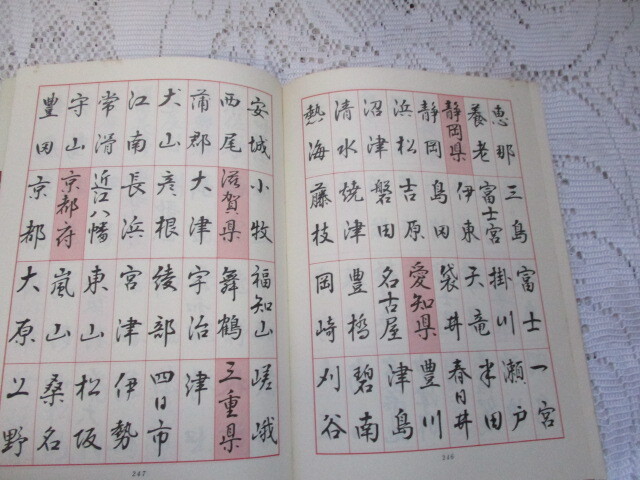 恵那
養老
静岡県
静岡
浜松
沼津
清水
熱海
三島
富士宮
伊東
島田
吉原
磐田
焼津
藤枝
富士
掛川
天竜
袋井
愛知県
名古屋
豊橋
岡崎
一宮
瀬戸
半田
春日井
豊川
津島
碧南
刈谷
246
安城
西尾
蒲郡
犬山
江南
常滑
守山
豊田
小牧
滋賀県
大津
彦根
長浜
近江八幡
京都府
京都
福知山
舞鶴
宇治
綾部
宮津
東山
嵐山
大原
嵯峨
三重県
津
四日市
伊勢
松坂
桑名
上野
247